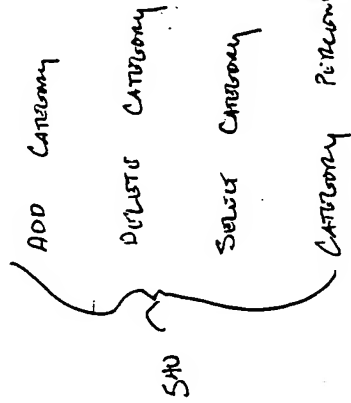 ADD CATEGORY
DELETE CATEGORY
SELECT CATEGORY
CATEGORY